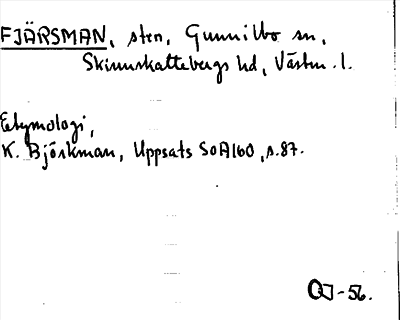 FJÄRSMAN, sten, Gunnilbo sn,
Skinnskattebergs hd, Västm. l.
Etymologi,
K. Björkman, Uppsats SOA160, s. 87.
OJ-56.